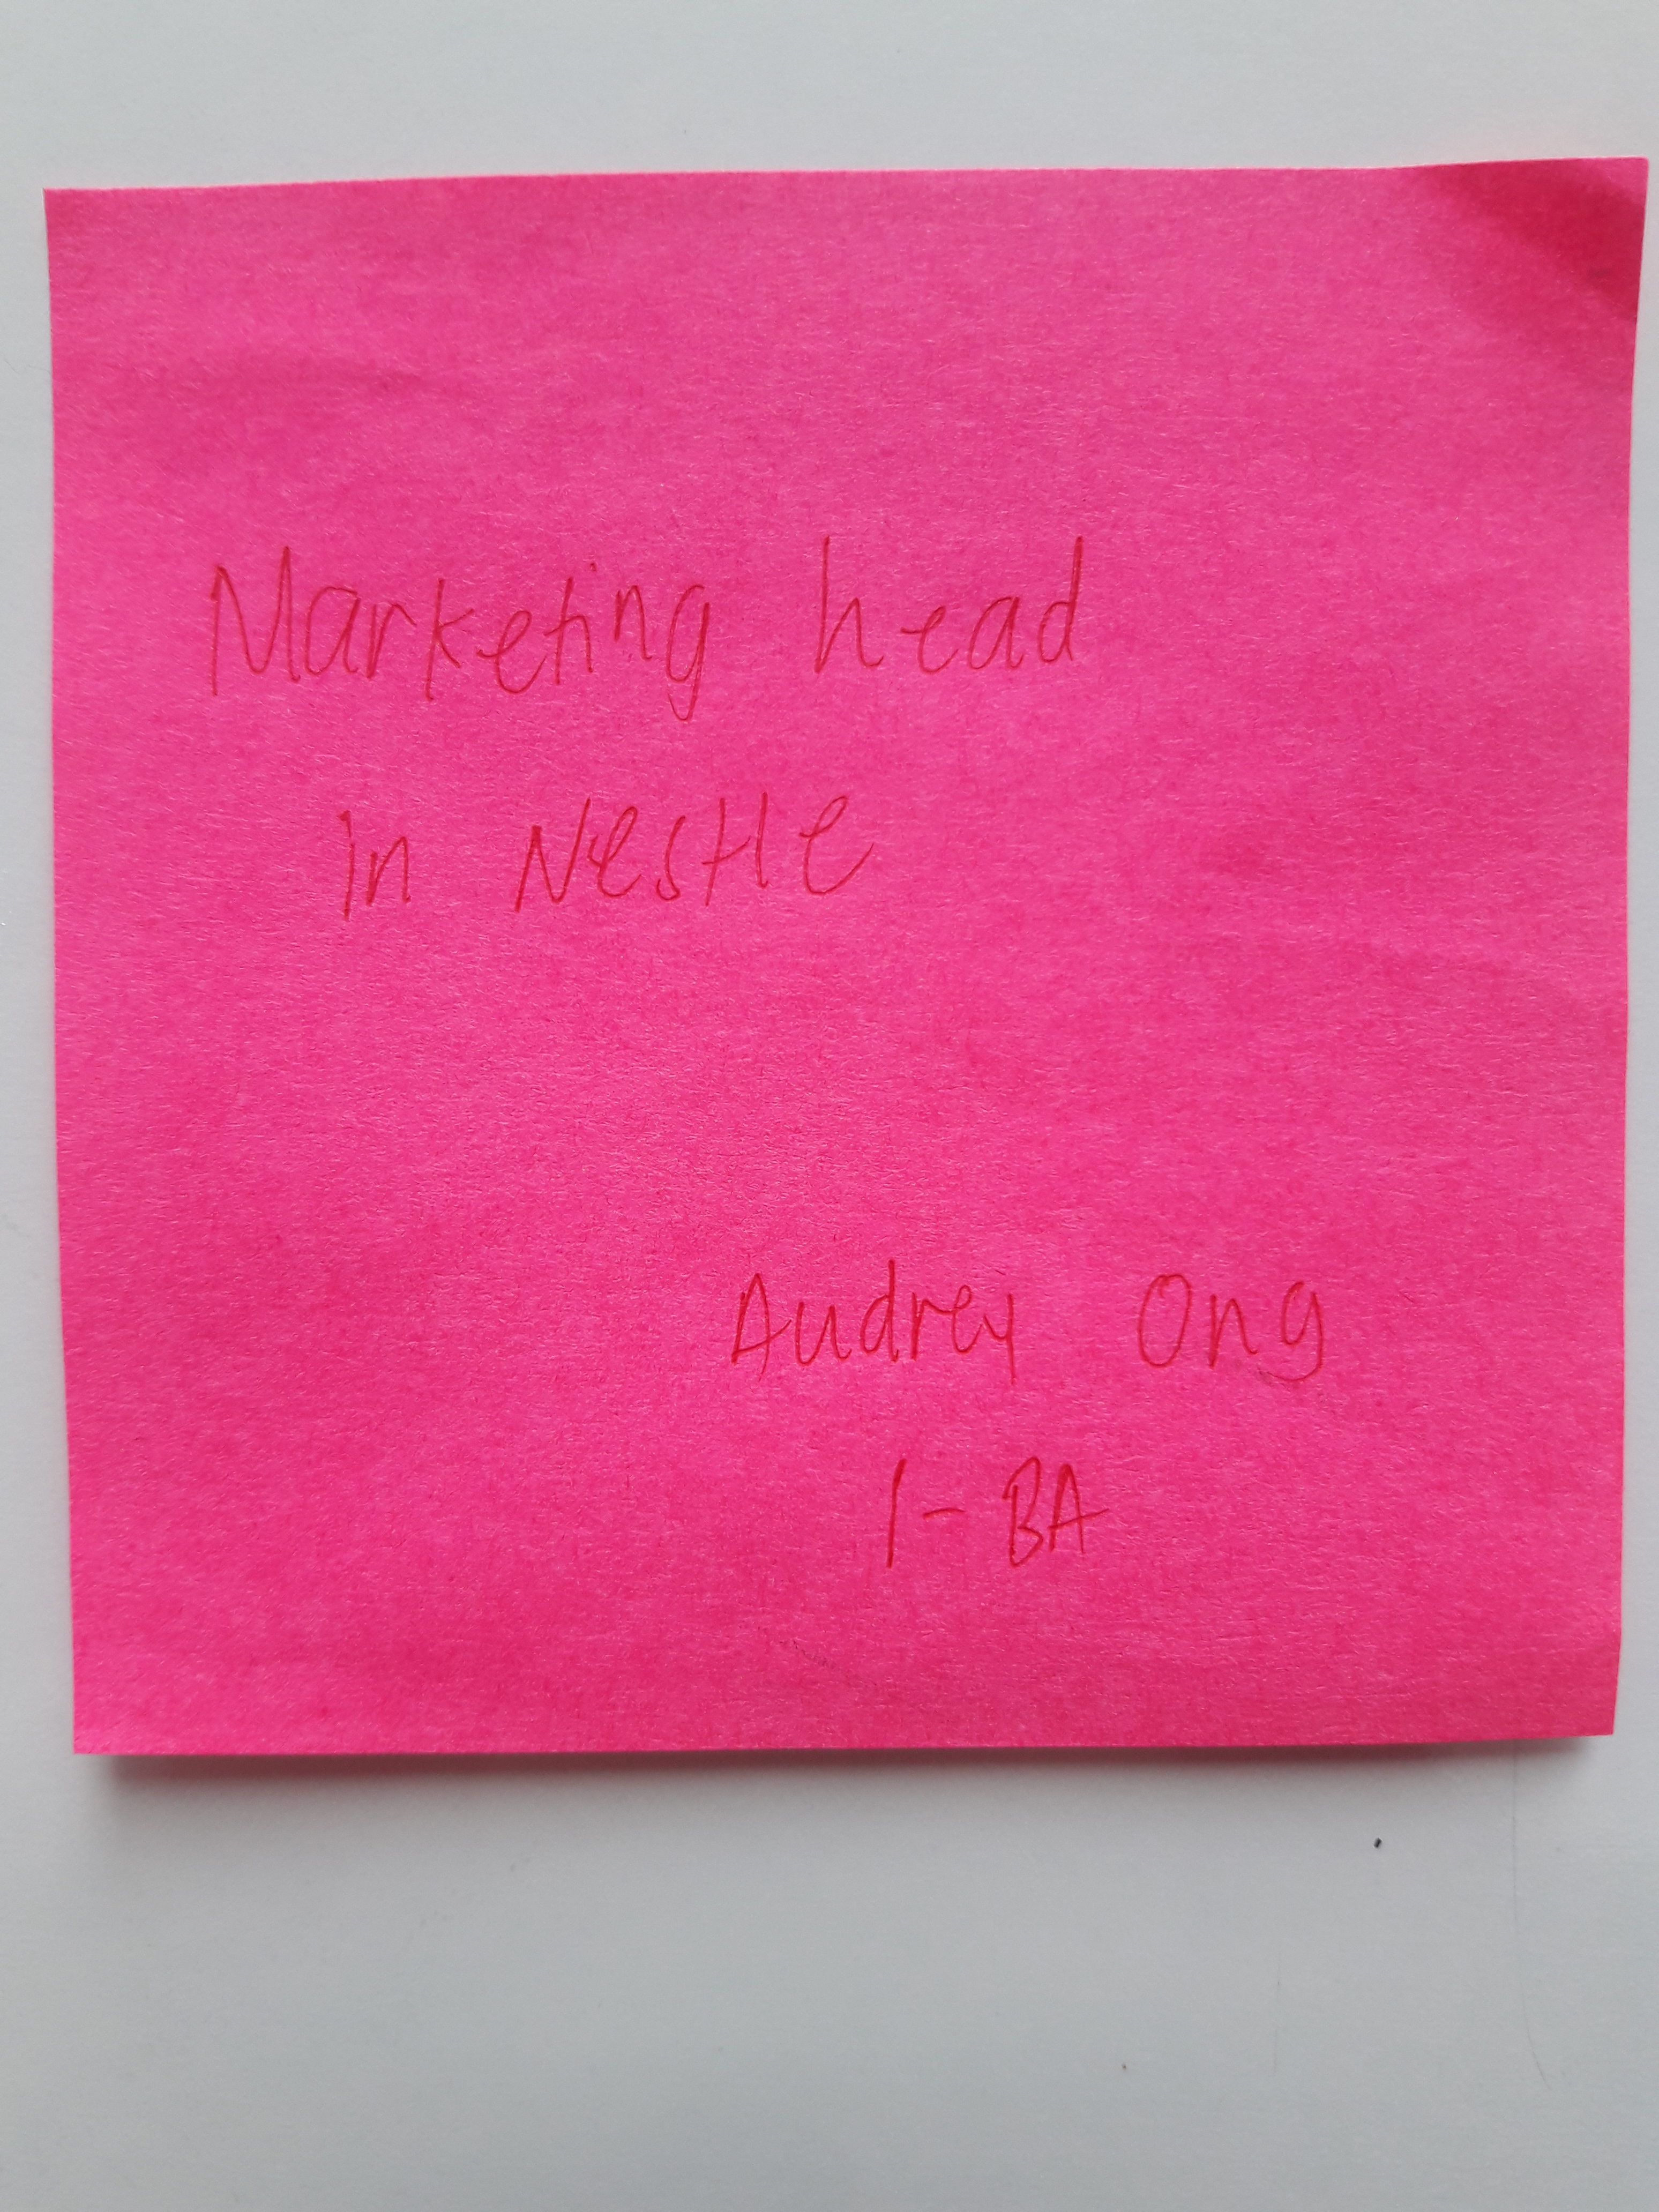 Marketing head
in Nestle
Audrey Ong
1 - BA